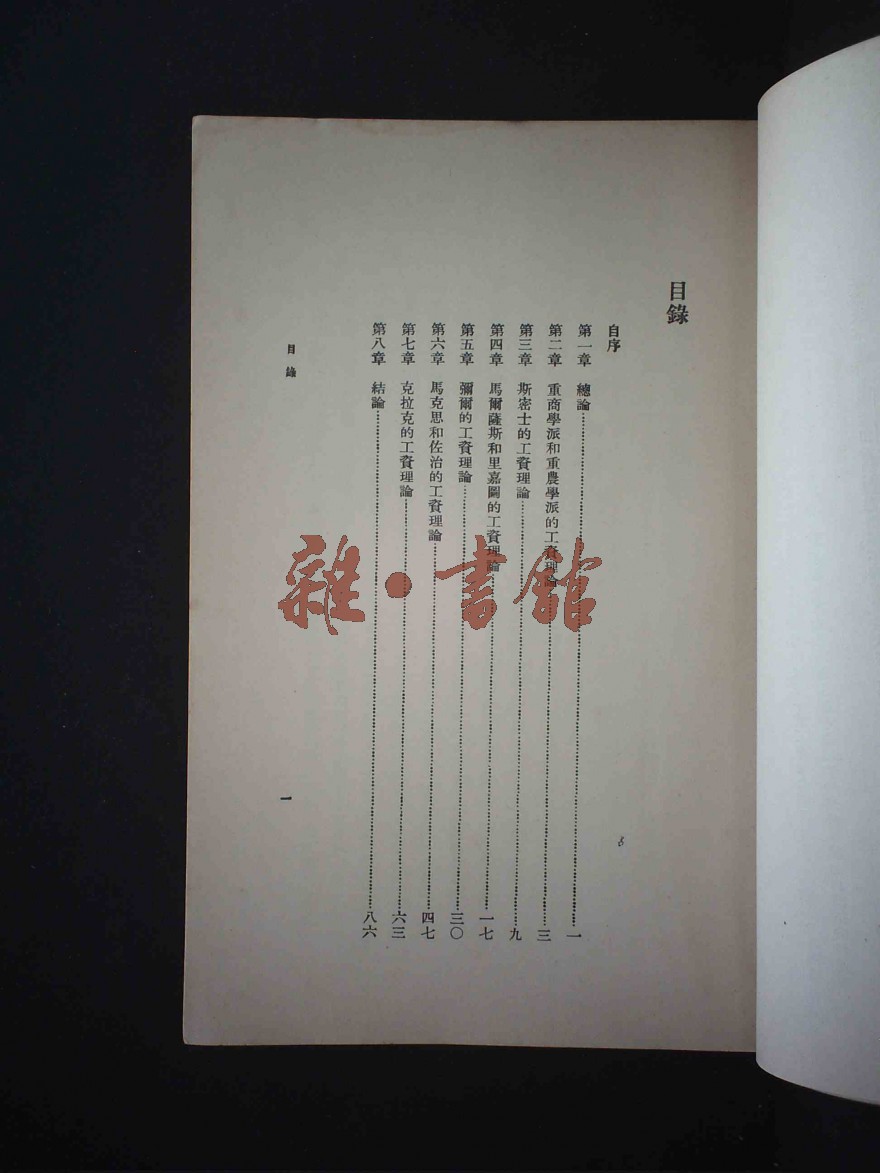 目錄
自序
第一章　總論……一
第二章　重商學派和重農學派的工資理論……三
第三章　斯密士的工資理論……九
第四章　馬爾薩斯和里嘉圖的工資理論……一七
第五章　彌爾的工資理論……三〇
第六章　馬克思和佐治的工資理論……四七
第七章　克拉克的工資理論……六三
第八章　結論……八六
目錄
一
雜·書館